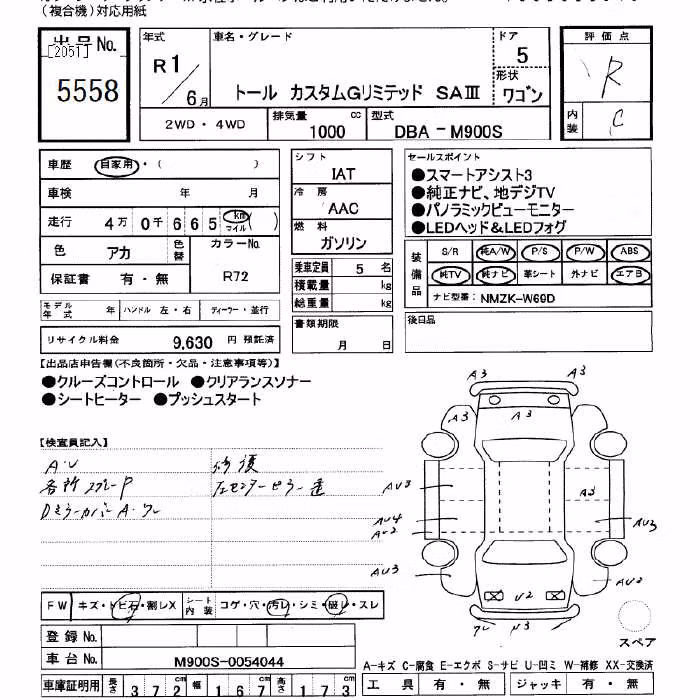 (複合機)対応用紙
出品No.
[2051]
5558
年式
R1/6月
車名・グレード
トール カスタムGリミテッド SAⅢ
ドア
5
形状
ワゴン
評価点
R
内装
C
2WD・4WD
排気量 1000 cc
型式 DBA-M900S
車歴 自家用・( )
車検 年 月
走行 4万 0千 6 6 5 km マイル ( )
色 アカ 色替 カラーNo. R72
保証書 有・無
モデル年式 年 ハンドル 左・右 ディーラー・並行
リサイクル料金 9,630 円 預託済
シフト
IAT
冷房
AAC
燃料
ガソリン
乗車定員 5 名
積載量 kg
総重量 kg
書類期限
月 日
セールスポイント
●スマートアシスト3
●純正ナビ、地デジTV
●パノラミックビューモニター
●LEDヘッド&LEDフォグ
装備品
S/R 純A/W P/S P/W ABS
純TV 純ナビ 革シート 外ナビ エアB
ナビ型番: NMZK-W69D
後日品
【出品店申告欄(不良箇所・欠品・注意事項等)】
●クルーズコントロール ●クリアランスソナー
●シートヒーター ●プッシュスタート
【検査員記入】
A・U 修復
各所
DミラーカバーA・ワレ
A3 A3
A3 A3
A3
AU3
AU4 AU3
AU2
AU3 AU2
U2
スペア
FW キズ・トビ石・割レX シート内装 コゲ・穴・汚レ・シミ・破レ・スレ
登録No.
車台No. M900S-0054044
A-キズ C-腐食 E-エクボ S-サビ U-凹ミ W-補修 XX-交換済
車庫証明用 長さ 3 7 2 cm 幅 1 6 7 cm 高さ 1 7 3 cm
工具 有・無 ジャッキ 有・無